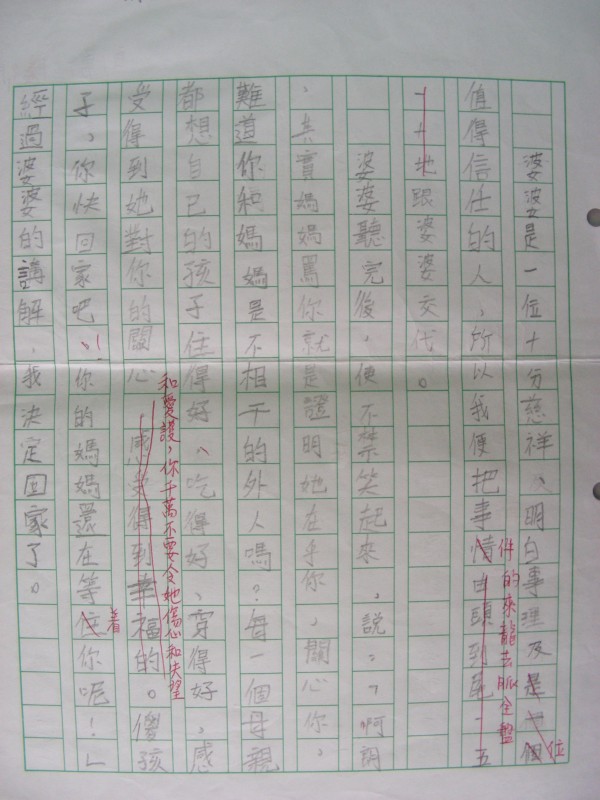 婆婆是一位十分慈祥、明白事理及是一個位
值得信任的人，所以我便把事情由頭到尾一五件的來龍去脈全盤
一十地跟婆婆交代。
婆婆聽完後，便不禁笑起來，說：「啊明
，其實媽媽罵你就是證明她在乎你、關心你，
難道你和媽媽是不相干的外人嗎？每一個母親
都想自己的孩子住得好、吃得好、穿得好，感
受得到她對你的關心感受得到幸福的。傻孩
和愛護，你千萬不要令她傷心和失望
子，你快回家吧！你的媽媽還在等住你呢！」
着
經過婆婆的講解，我決定回家了。